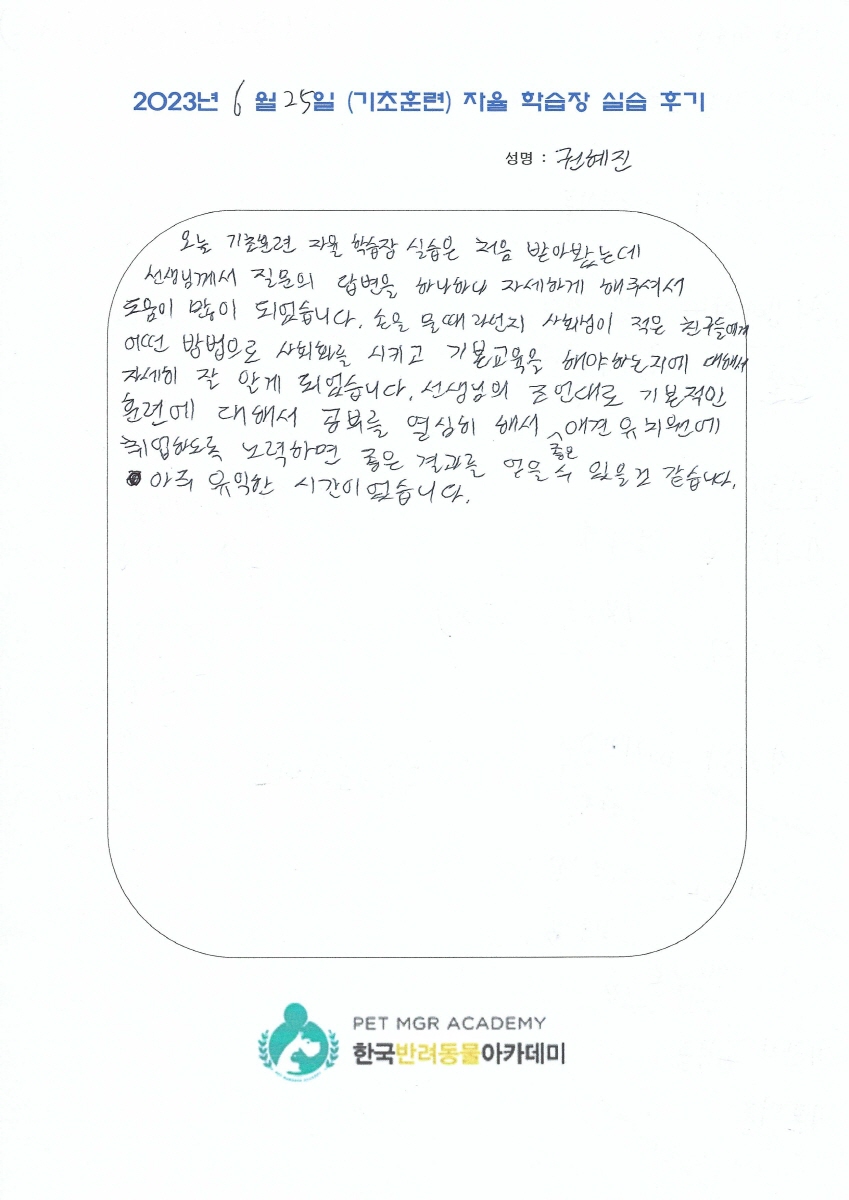 2023년 6월 25일 (기초훈련) 자율 학습장 실습 후기
성명 : 권혜진
오늘 기초훈련 자율 학습장 실습은 처음 받아봤는데
선생님께서 질문의 답변을 하나하나 자세하게 해주셔서
도움이 많이 되었습니다. 손을 물때라던지 사회성이 적은 친구들에게
어떤 방법으로 사회화를 시키고 기본교육을 해야하는지에 대해서
자세히 잘 알게 되었습니다. 선생님의 조언대로 기본적인
훈련에 대해서 공부를 열심히 해서 애견유치원에
취업하도록 노력하면 좋은 결과를 얻을 수 있을것 같습니다.
좋은
아주 유익한 시간이었습니다.
PET MGR ACADEMY
한국반려동물아카데미